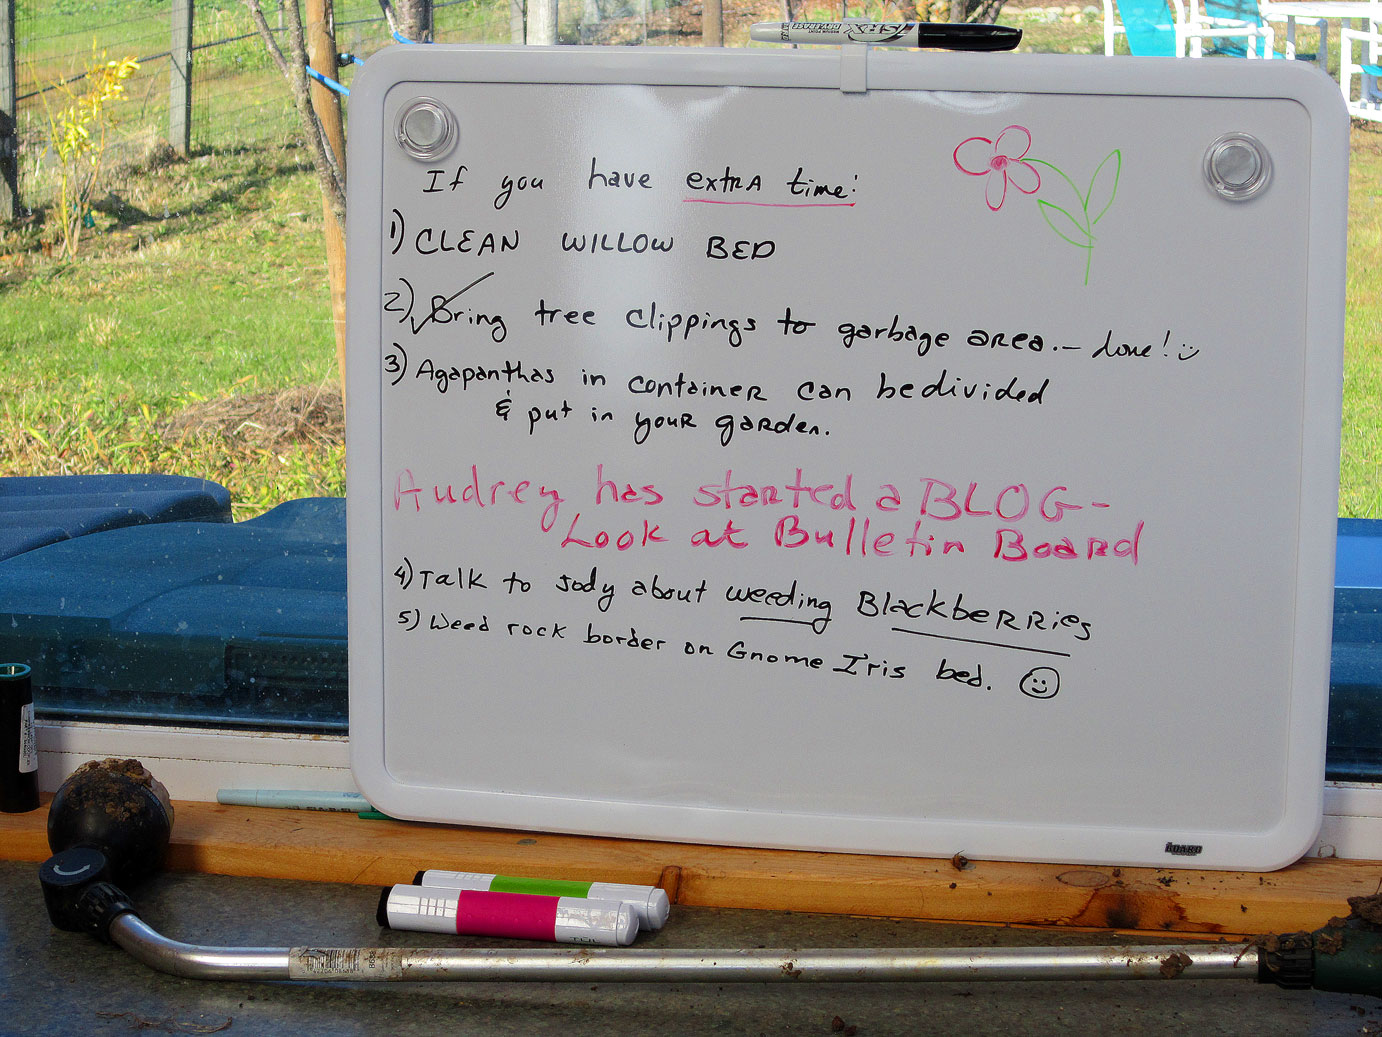 If you have extra time:
1) CLEAN WILLOW BED
2) Bring tree clippings to garbage area. – done!
3) Agapanthas in container can be divided
& put in your garden.
Audrey has started a BLOG –
Look at Bulletin Board
4) Talk to Jody about weeding Blackberries
5) Weed rock border on Gnome Iris bed.